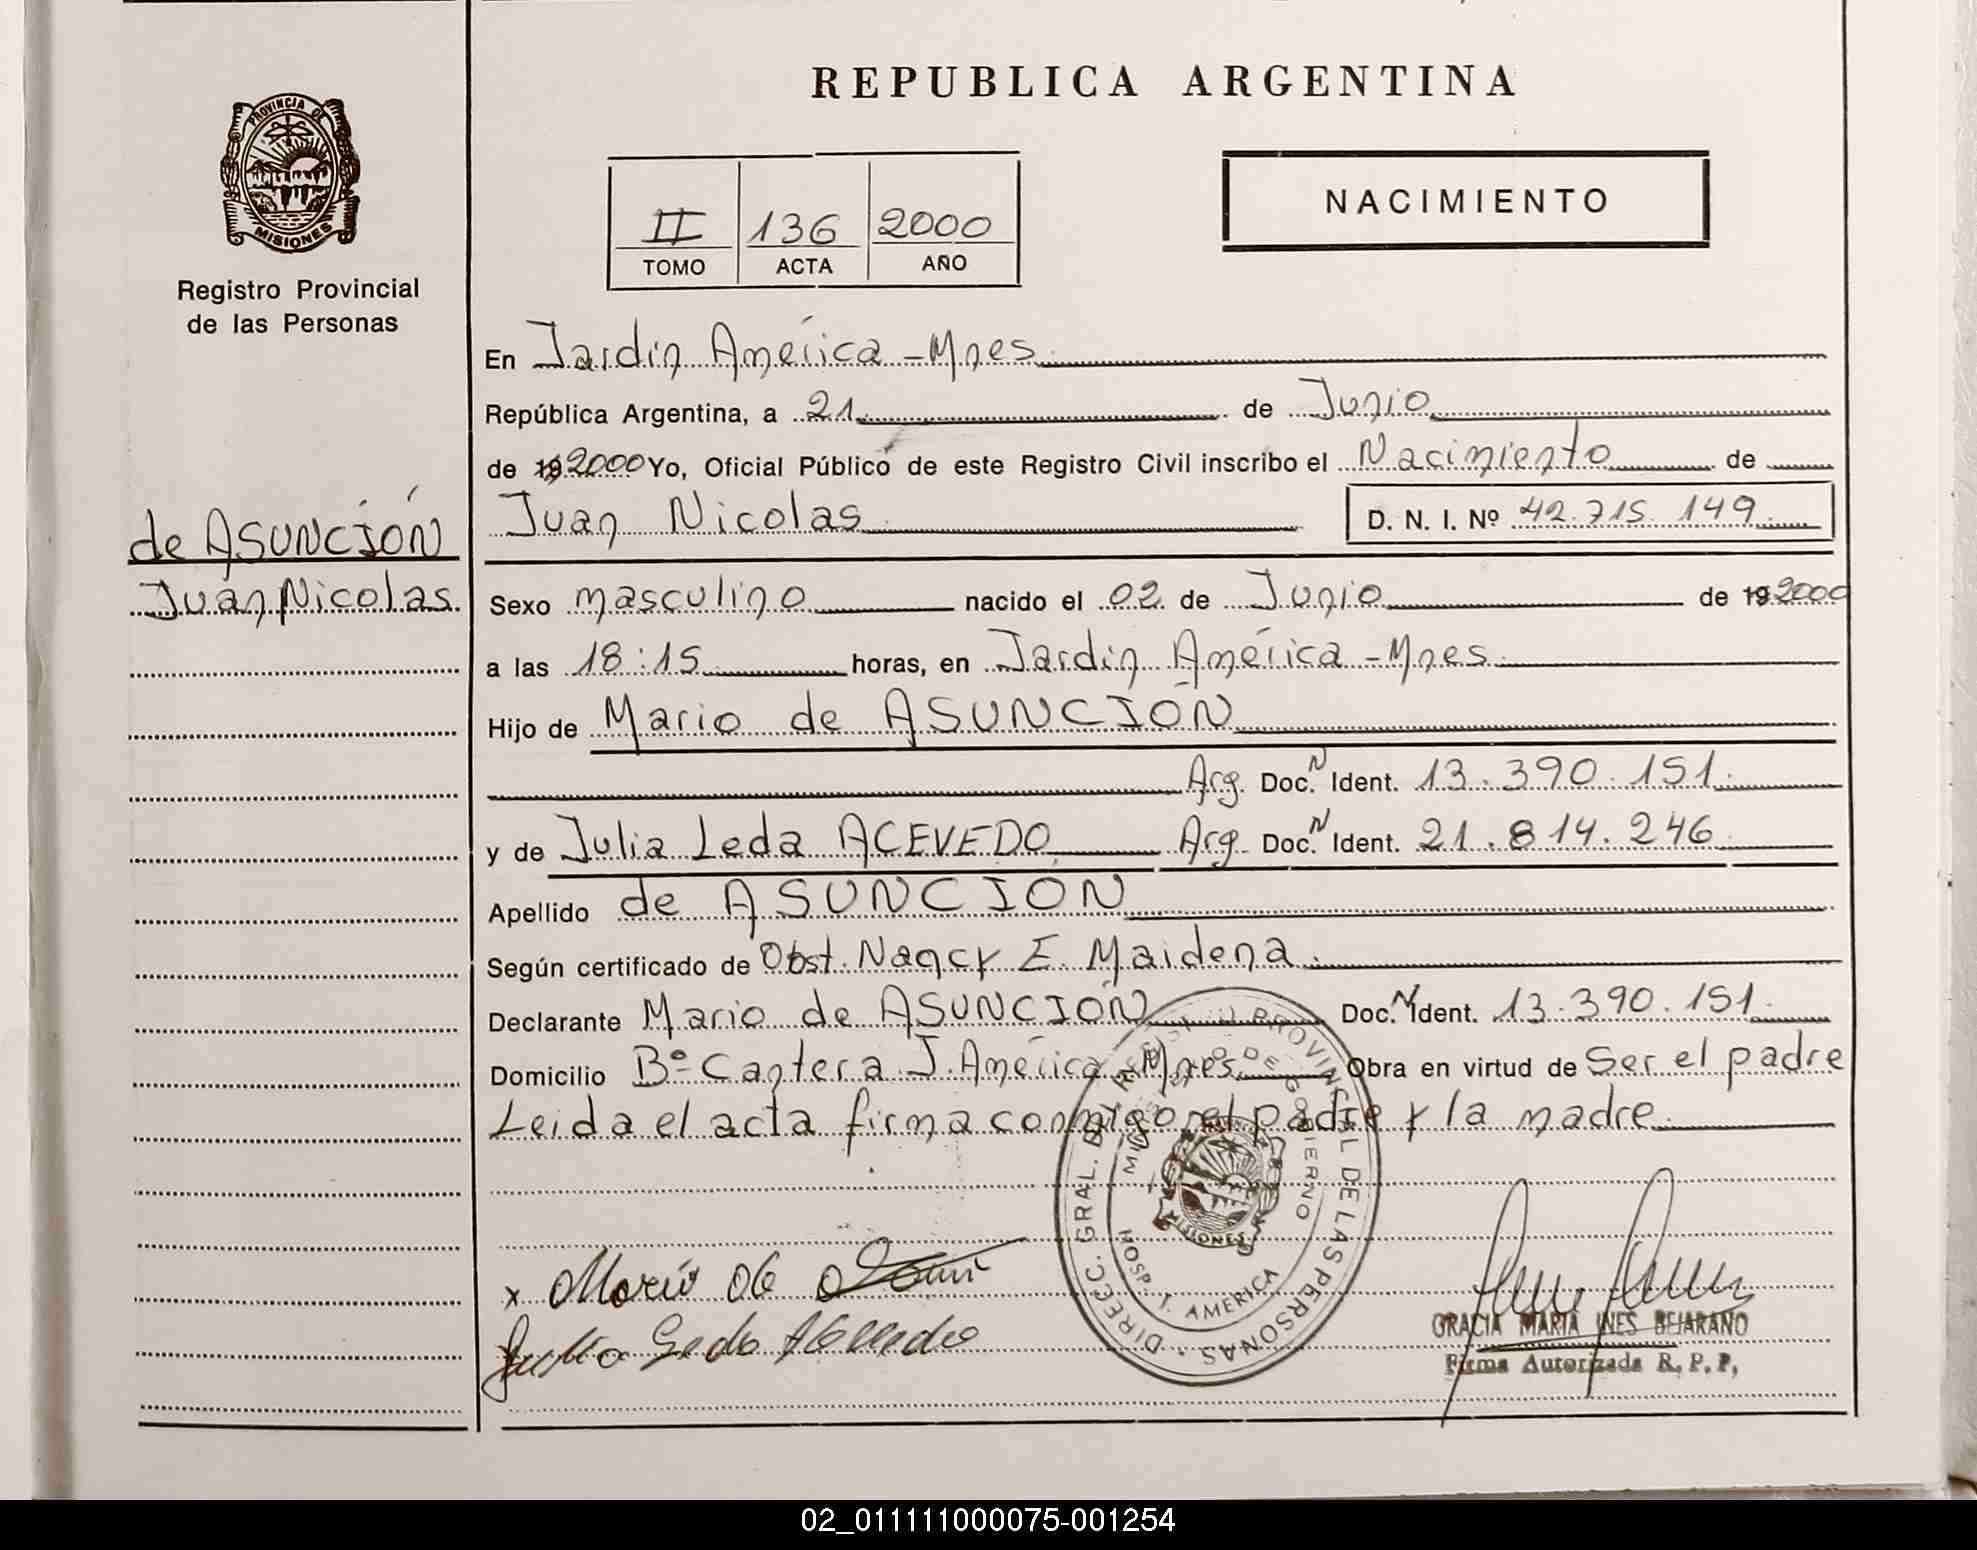 REPUBLICA ARGENTINA
PROVINCIA DE
MISIONES
Registro Provincial
de las Personas
II 136 2000
TOMO ACTA AÑO
NACIMIENTO
En Jardin América - Mnes.
República Argentina, a 21 de Junio
de 19 2000 Yo, Oficial Público de este Registro Civil inscribo el Nacimiento de
Juan Nicolas D. N. I. Nº 42.715.149
de ASUNCIÓN
Juan Nicolas.
Sexo masculino nacido el 02 de Junio de 19 2000
a las 18:15 horas, en Jardin América - Mnes.
Hijo de Mario de ASUNCIÓN
Arg. Doc. N Ident. 13.390.151.
y de Julia Leda ACEVEDO Arg. Doc. N Ident. 21.814.246
Apellido de ASUNCION
Según certificado de Obst. Nancy E. Maidana.
Declarante Mario de ASUNCIÓN Doc. N Ident. 13.390.151.
Domicilio Bº Cantera J. América Mnes. Obra en virtud de Ser el padre
Leida el acta firma conmigo el padre y la madre.
DIRECC. GRAL. DEL REGISTRO PROVINCIAL DE LAS PERSONAS
MINISTERIO DE GOBIERNO
MISIONES
HOSP. J. AMERICA
x Mario de
Julia Leda Acevedo
GRACIA MARIA INES BEJARANO
Firma Autorizada R. P. P.
02_011111000075-001254